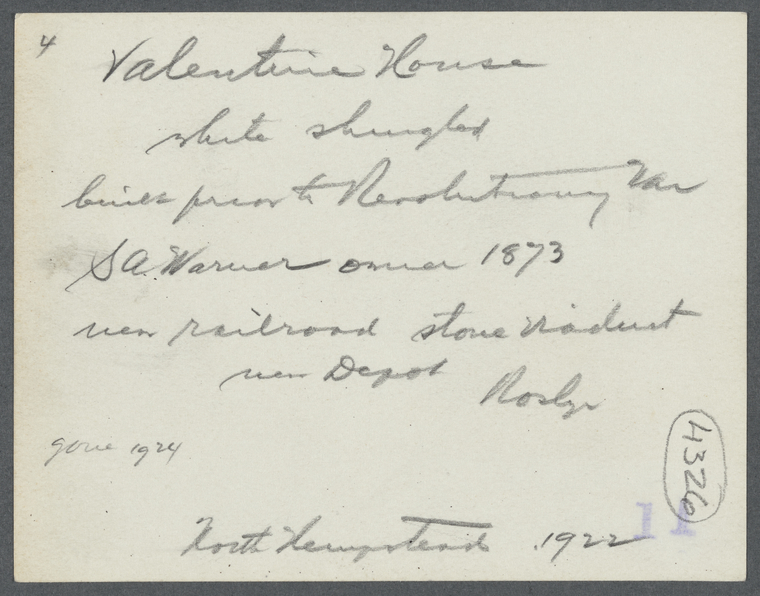 4
Valentine House
white shingled
built prior to Revolutionary War
S.A. Warner owner 1873
near railroad stone viaduct
near Depot Roslyn
gone 1924
4326
11
North Hempstead 1922